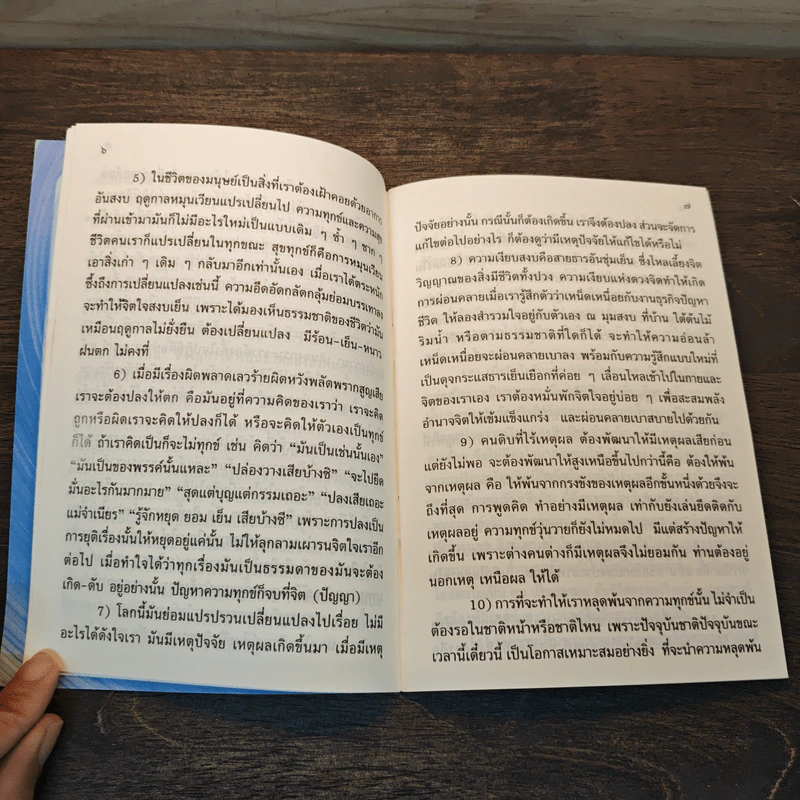 ๖
5) ในชีวิตของมนุษย์เป็นสิ่งที่เราต้องเฝ้าคอยด้วยอาการ
อันสงบ ฤดูกาลหมุนเวียนแปรเปลี่ยนไป ความทุกข์และความสุข
ที่ผ่านเข้ามามันก็ไม่มีอะไรใหม่เป็นแบบเดิม ๆ ซ้ำ ๆ ซาก ๆ
ชีวิตคนเราก็แปรเปลี่ยนในทุกขณะ สุขทุกข์ก็คือการหมุนเวียน
เอาสิ่งเก่า ๆ เดิม ๆ กลับมาอีกเท่านั้นเอง เมื่อเราได้ตระหนัก
ซึ้งถึงการเปลี่ยนแปลงเช่นนี้ ความอึดอัดกลัดกลุ้มย่อมบรรเทาลง
จะทำให้จิตใจสงบเย็น เพราะได้มองเห็นธรรมชาติของชีวิตว่ามัน
เหมือนฤดูกาลไม่ยั่งยืน ต้องเปลี่ยนแปลง มีร้อน-เย็น-หนาว
ฝนตก ไม่คงที่
6) เมื่อมีเรื่องผิดพลาดเลวร้ายผิดหวังพลัดพรากสูญเสีย
เราจะต้องปลงให้ตก คือมันอยู่ที่ความคิดของเราว่า เราจะคิด
ถูกหรือผิดเราจะคิดให้ปลงก็ได้ หรือจะคิดให้ตัวเองเป็นทุกข์
ก็ได้ ถ้าเราคิดเป็นก็จะไม่ทุกข์ เช่น คิดว่า “มันเป็นเช่นนั้นเอง”
“มันเป็นของพรรค์นั้นแหละ” “ปล่องวางเสียบ้างซิ” “จะไปยึด
มั่นอะไรกันมากมาย” “สุดแต่บุญแต่กรรมเถอะ” “ปลงเสียเถอะ
แม่จำเนียร” “รู้จักหยุด ยอม เย็น เสียบ้างซี” เพราะการปลงเป็น
การยุติเรื่องนั้นให้หยุดอยู่แค่นั้น ไม่ให้ลุกลามเผารนจิตใจเราอีก
ต่อไป เมื่อทำใจได้ว่าทุกเรื่องมันเป็นธรรมดาของมันจะต้อง
เกิด-ดับ อยู่อย่างนั้น ปัญหาความทุกข์ก็จบที่จิต (ปัญญา)
7) โลกนี้มันย่อมแปรปรวนเปลี่ยนแปลงไปเรื่อย ไม่มี
อะไรได้ดังใจเรา มันมีเหตุปัจจัย เหตุผลเกิดขึ้นมา เมื่อมีเหตุ
๗
ปัจจัยอย่างนั้น กรณีนั้นก็ต้องเกิดขึ้น เราจึงต้องปลง ส่วนจะจัดการ
แก้ไขต่อไปอย่างไร ก็ต้องดูว่ามีเหตุปัจจัยให้แก้ไขได้หรือไม่
8) ความเงียบสงบคือสายธารอันชุ่มเย็น ซึ่งไหลเลี้ยงจิต
วิญญาณของสิ่งมีชีวิตทั้งปวง ความเงียบแห่งดวงจิตทำให้เกิด
การผ่อนคลายเมื่อเรารู้สึกตัวว่าเหน็ดเหนื่อยกับงานธุรกิจปัญหา
ชีวิต ให้ลองสำรวมใจอยู่กับตัวเอง ณ มุมสงบ ที่บ้าน ใต้ต้นไม้
ริมน้ำ หรือตามธรรมชาติที่ใดก็ได้ จะทำให้ความอ่อนล้า
เหน็ดเหนื่อยจะผ่อนคลายเบาลง พร้อมกับความรู้สึกแบบใหม่ที่
เป็นดุจกระแสธารเย็นเยือกที่ค่อย ๆ เลื่อนไหลเข้าไปในกายและ
จิตของเราเอง เราต้องหมั่นพักจิตใจอยู่บ่อย ๆ เพื่อสะสมพลัง
อำนาจจิตให้เข้มแข็งแกร่ง และผ่อนคลายเบาสบายไปด้วยกัน
9) คนดิบที่ไร้เหตุผล ต้องพัฒนาให้มีเหตุผลเสียก่อน
แต่ยังไม่พอ จะต้องพัฒนาให้สูงเหนือขึ้นไปกว่านี้คือ ต้องให้พ้น
จากเหตุผล คือ ให้พ้นจากกรงขังของเหตุผลอีกชั้นหนึ่งด้วยจึงจะ
ถึงที่สุด การพูดคิด ทำอย่างมีเหตุผล เท่ากับยังเล่นยึดติดกับ
เหตุผลอยู่ ความทุกข์วุ่นวายก็ยังไม่หมดไป มีแต่สร้างปัญหาให้
เกิดขึ้น เพราะต่างคนต่างก็มีเหตุผลจึงไม่ยอมกัน ท่านต้องอยู่
นอกเหตุ เหนือผล ให้ได้
10) การที่จะทำให้เราหลุดพ้นจากความทุกข์นั้น ไม่จำเป็น
ต้องรอในชาติหน้าหรือชาติไหน เพราะปัจจุบันชาติปัจจุบันขณะ
เวลานี้เดี๋ยวนี้ เป็นโอกาสเหมาะสมอย่างยิ่ง ที่จะนำความหลุดพ้น